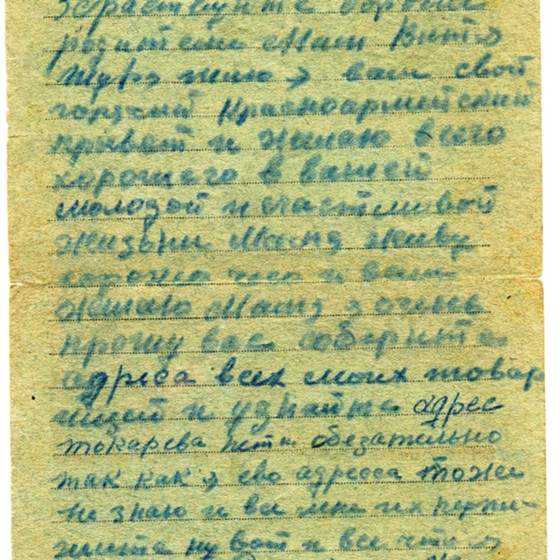 Здраствуйте дорогие
родители Мама Витя
Шура шлю я вам свой
горячий Красноармейский
привет и желаю всего
хорошего в вашей
молодой и счастливой
жизни Мама живу
хорошо чего и вам
желаю Мама я очень
прошу вас соберите
адреса всех моих товар
ищей и узнайте адрес
токарева пети обезательно
так как я ево адресса тоже
не знаю и вы мне их
ну вот и все что я